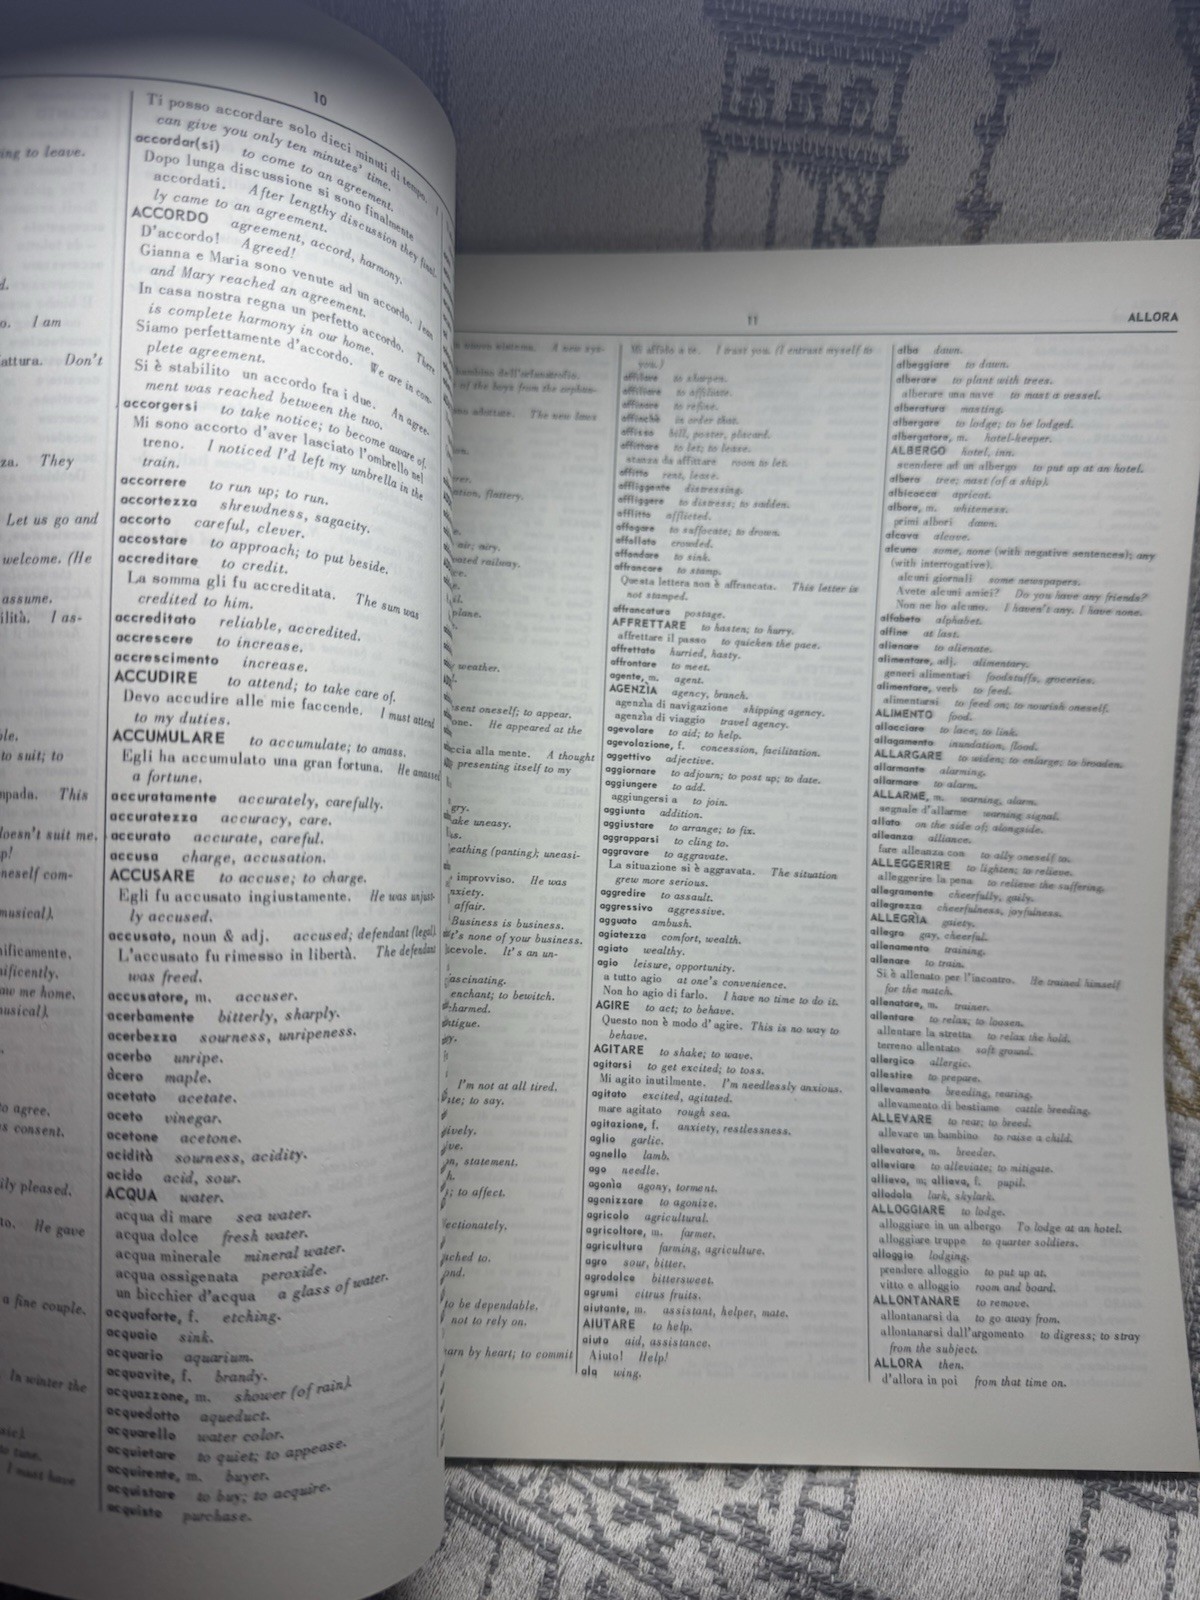 ing to leave.
I am
attura. Don't
They
Let us go and
welcome. (He
assume.
ilità. I as-
to suit; to
mpada. This
doesn't suit me.
musical).
mificamente.
nificently.
me home.
to agree.
consent.
ily pleased.
to. He gave
a fine couple.
In winter the
10
Ti posso accordare solo dieci minuti di tempo.
can give you only ten minutes' time.
accordar(si) to come to an agreement.
Dopo lunga discussione si sono finalmente
accordati. After lengthy discussion they final-
ly came to an agreement.
ACCORDO agreement, accord, harmony.
D'accordo! Agreed!
Gianna e Maria sono venute ad un accordo. Jean
and Mary reached an agreement.
In casa nostra regna un perfetto accordo. There
is complete harmony in our home.
Siamo perfettamente d'accordo. We are in com-
plete agreement.
Si è stabilito un accordo fra i due. An agree-
ment was reached between the two.
accorgersi to take notice; to become aware of.
Mi sono accorto d'aver lasciato l'ombrello nel
treno. I noticed I'd left my umbrella in the
train.
accorrere to run up; to run.
accortezza shrewdness, sagacity.
accorto careful, clever.
accostare to approach; to put beside.
accreditare to credit.
La somma gli fu accreditata. The sum was
credited to him.
accreditato reliable, accredited.
accrescere to increase.
accrescimento increase.
ACCUDIRE to attend; to take care of.
Devo accudire alle mie faccende. I must attend
to my duties.
ACCUMULARE to accumulate; to amass.
Egli ha accumulato una gran fortuna. He amassed
a fortune.
accuratamente accurately, carefully.
accuratezza accuracy, care.
accurato accurate, careful.
accusa charge, accusation.
ACCUSARE to accuse; to charge.
Egli fu accusato ingiustamente. He was unjust-
ly accused.
accusato, noun & adj. accused; defendant (legal).
L'accusato fu rimesso in libertà. The defendant
was freed.
accusatore, m. accuser.
acerbamente bitterly, sharply.
acerbezza sourness, unripeness.
acerbo unripe.
àcero maple.
acetato acetate.
aceto vinegar.
acetone acetone.
acidità sourness, acidity.
acido acid, sour.
ACQUA water.
acqua di mare sea water.
acqua dolce fresh water.
acqua minerale mineral water.
acqua ossigenata peroxide.
un bicchier d'acqua a glass of water.
acquaforte, f. etching.
acquaio sink.
acquario aquarium.
acquavite, f. brandy.
acquazzone, m. shower (of rain).
acquedotto aqueduct.
acquarello water color.
acquietare to quiet; to appease.
acquirente, m. buyer.
acquistare to buy; to acquire.
acquisto purchase.
11
ALLORA
A new sys-
bambino dell'orfanotrofio.
of the boys from the orphan-
The new laws
flattery.
air; airy.
railway.
plane.
weather.
sent oneself; to appear.
He appeared at the
alla mente. A thought
presenting itself to my
uneasy.
(panting); uneasi-
improvviso. He was
affair.
Business is business.
none of your business.
It's an un-
enchant; to bewitch.
I'm not at all tired.
to say.
statement.
to affect.
to be dependable.
not to rely on.
by heart; to commit
Mi affido a te. I trust you. (I entrust myself to
you.)
affilare to sharpen.
affiliare to affiliate.
affinare to refine.
affinchè in order that.
affisso bill, poster, placard.
affittare to let; to lease.
stanza da affittare room to let.
affitto rent, lease.
affliggente distressing.
affliggere to distress; to sadden.
afflitto afflicted.
affogare to suffocate; to drown.
affollato crowded.
affondare to sink.
affrancare to stamp.
Questa lettera non è affrancata. This letter is
not stamped.
affrancatura postage.
AFFRETTARE to hasten; to hurry.
affrettare il passo to quicken the pace.
affrettato hurried, hasty.
affrontare to meet.
agente, m. agent.
AGENZÌA agency, branch.
agenzìa di navigazione shipping agency.
agenzìa di viaggio travel agency.
agevolare to aid; to help.
agevolazione, f. concession, facilitation.
aggettivo adjective.
aggiornare to adjourn; to post up; to date.
aggiungere to add.
aggiungersi a to join.
aggiunta addition.
aggiustare to arrange; to fix.
aggrapparsi to cling to.
aggravare to aggravate.
La situazione si è aggravata. The situation
grew more serious.
aggredire to assault.
aggressivo aggressive.
agguato ambush.
agiatezza comfort, wealth.
agiato wealthy.
agio leisure, opportunity.
a tutto agio at one's convenience.
Non ho agio di farlo. I have no time to do it.
AGIRE to act; to behave.
Questo non è modo d'agire. This is no way to
behave.
AGITARE to shake; to wave.
agitarsi to get excited; to toss.
Mi agito inutilmente. I'm needlessly anxious.
agitato excited, agitated.
mare agitato rough sea.
agitazione, f. anxiety, restlessness.
aglio garlic.
agnello lamb.
ago needle.
agonia agony, torment.
agonizzare to agonize.
agricolo agricultural.
agricoltore, m. farmer.
agricultura farming, agriculture.
agro sour, bitter.
agrodolce bittersweet.
agrumi citrus fruits.
aiutante, m. assistant, helper, mate.
AIUTARE to help.
aiuto aid, assistance.
Aiuto! Help!
ala wing.
alba dawn.
albeggiare to dawn.
alberare to plant with trees.
alberare una nave to mast a vessel.
alberatura masting.
albergare to lodge; to be lodged.
albergatore, m. hotel-keeper.
ALBERGO hotel, inn.
scendere ad un albergo to put up at an hotel.
albero tree; mast (of a ship).
albicocca apricot.
albore, m. whiteness.
primi albori dawn.
alcova alcove.
alcuno some, none (with negative sentences); any
(with interrogative).
alcuni giornali some newspapers.
Avete alcuni amici? Do you have any friends?
Non ne ho alcuno. I haven't any. I have none.
alfabeto alphabet.
alfine at last.
alienare to alienate.
alimentare, adj. alimentary.
generi alimentari foodstuffs, groceries.
alimentare, verb to feed.
alimentarsi to feed on; to nourish oneself.
ALIMENTO food.
allacciare to lace; to link.
allagamento inundation, flood.
ALLARGARE to widen; to enlarge; to broaden.
allarmante alarming.
allarmare to alarm.
ALLARME, m. warning, alarm.
segnale d'allarme warning signal.
allato on the side of; alongside.
alleanza alliance.
fare alleanza con to ally oneself to.
ALLEGGERIRE to lighten; to relieve.
alleggerire la pena to relieve the suffering.
allegramente cheerfully, gaily.
allegrezza cheerfulness, joyfulness.
ALLEGRÌA gaiety.
allegro gay, cheerful.
allenamento training.
allenare to train.
Si è allenato per l'incontro. He trained himself
for the match.
allenatore, m. trainer.
allentare to relax; to loosen.
allentare la stretta to relax the hold.
terreno allentato soft ground.
allergico allergic.
allestire to prepare.
allevamento breeding, rearing.
allevamento di bestiame cattle breeding.
ALLEVARE to rear; to breed.
allevare un bambino to raise a child.
allevatore, m. breeder.
alleviare to alleviate; to mitigate.
allievo, m; allieva, f. pupil.
allodola lark, skylark.
ALLOGGIARE to lodge.
alloggiare in un albergo To lodge at an hotel.
alloggiare truppe to quarter soldiers.
alloggio lodging.
prendere alloggio to put up at.
vitto e alloggio room and board.
ALLONTANARE to remove.
allontanarsi da to go away from.
allontanarsi dall'argomento to digress; to stray
from the subject.
ALLORA then.
d'allora in poi from that time on.